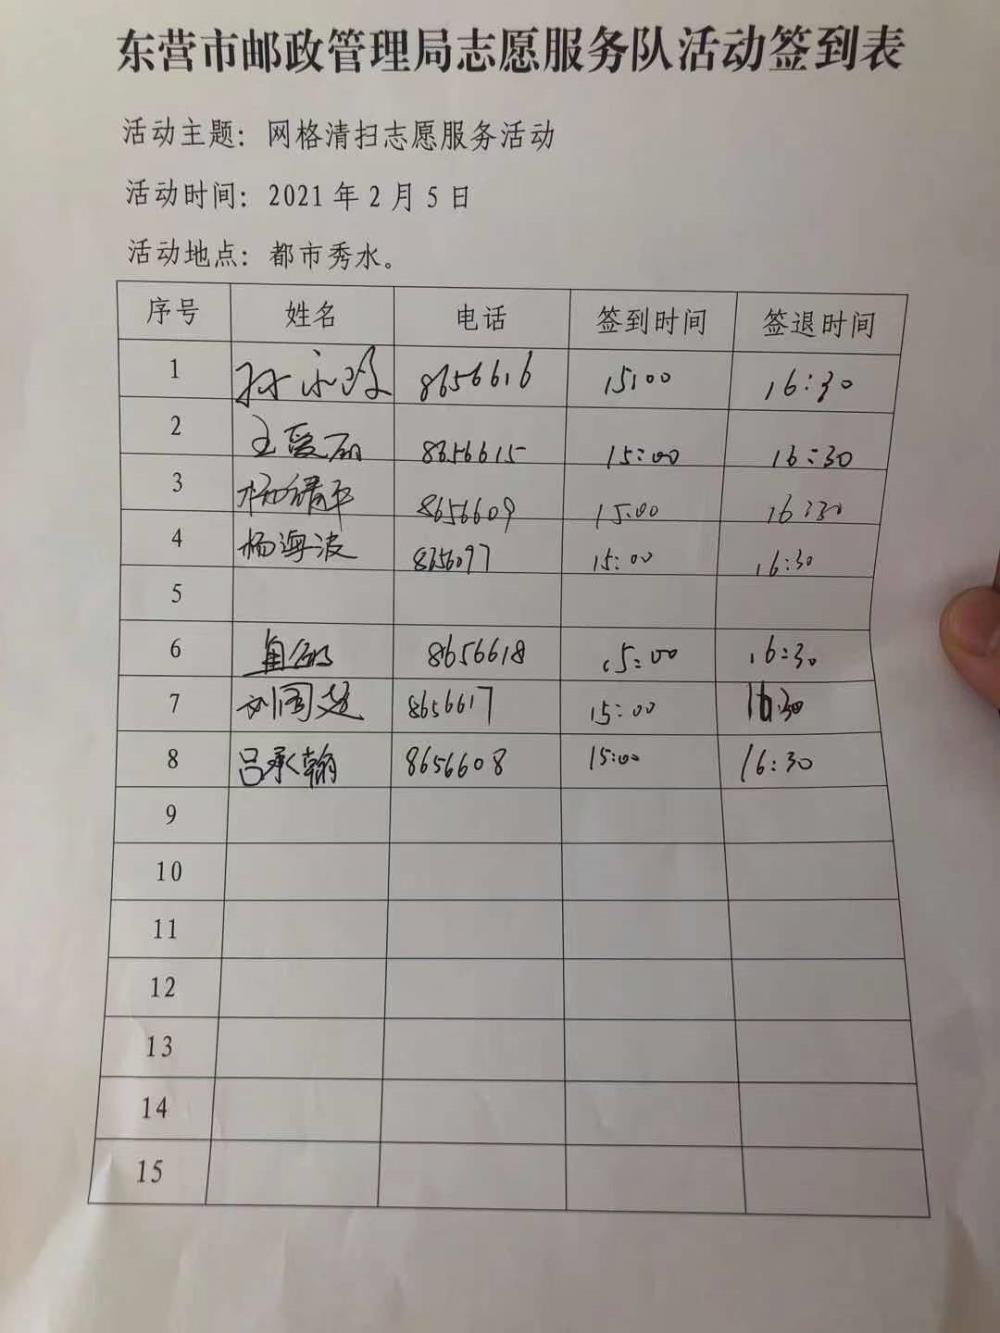 东营市邮政管理局志愿服务队活动签到表
活动主题：网格清扫志愿服务活动
活动时间：2021年2月5日
活动地点：都市秀水。
序号 姓名 电话 签到时间 签退时间
1 8656616 15:00 16:30
2 8656615 15:00 16:30
3 8656609 15:00 16:30
4 杨海波 8656097 15:00 16:30
5
6 8656618 15:00 16:30
7 8656617 15:00 16:30
8 吕承翰 8656608 15:00 16:30
9
10
11
12
13
14
15